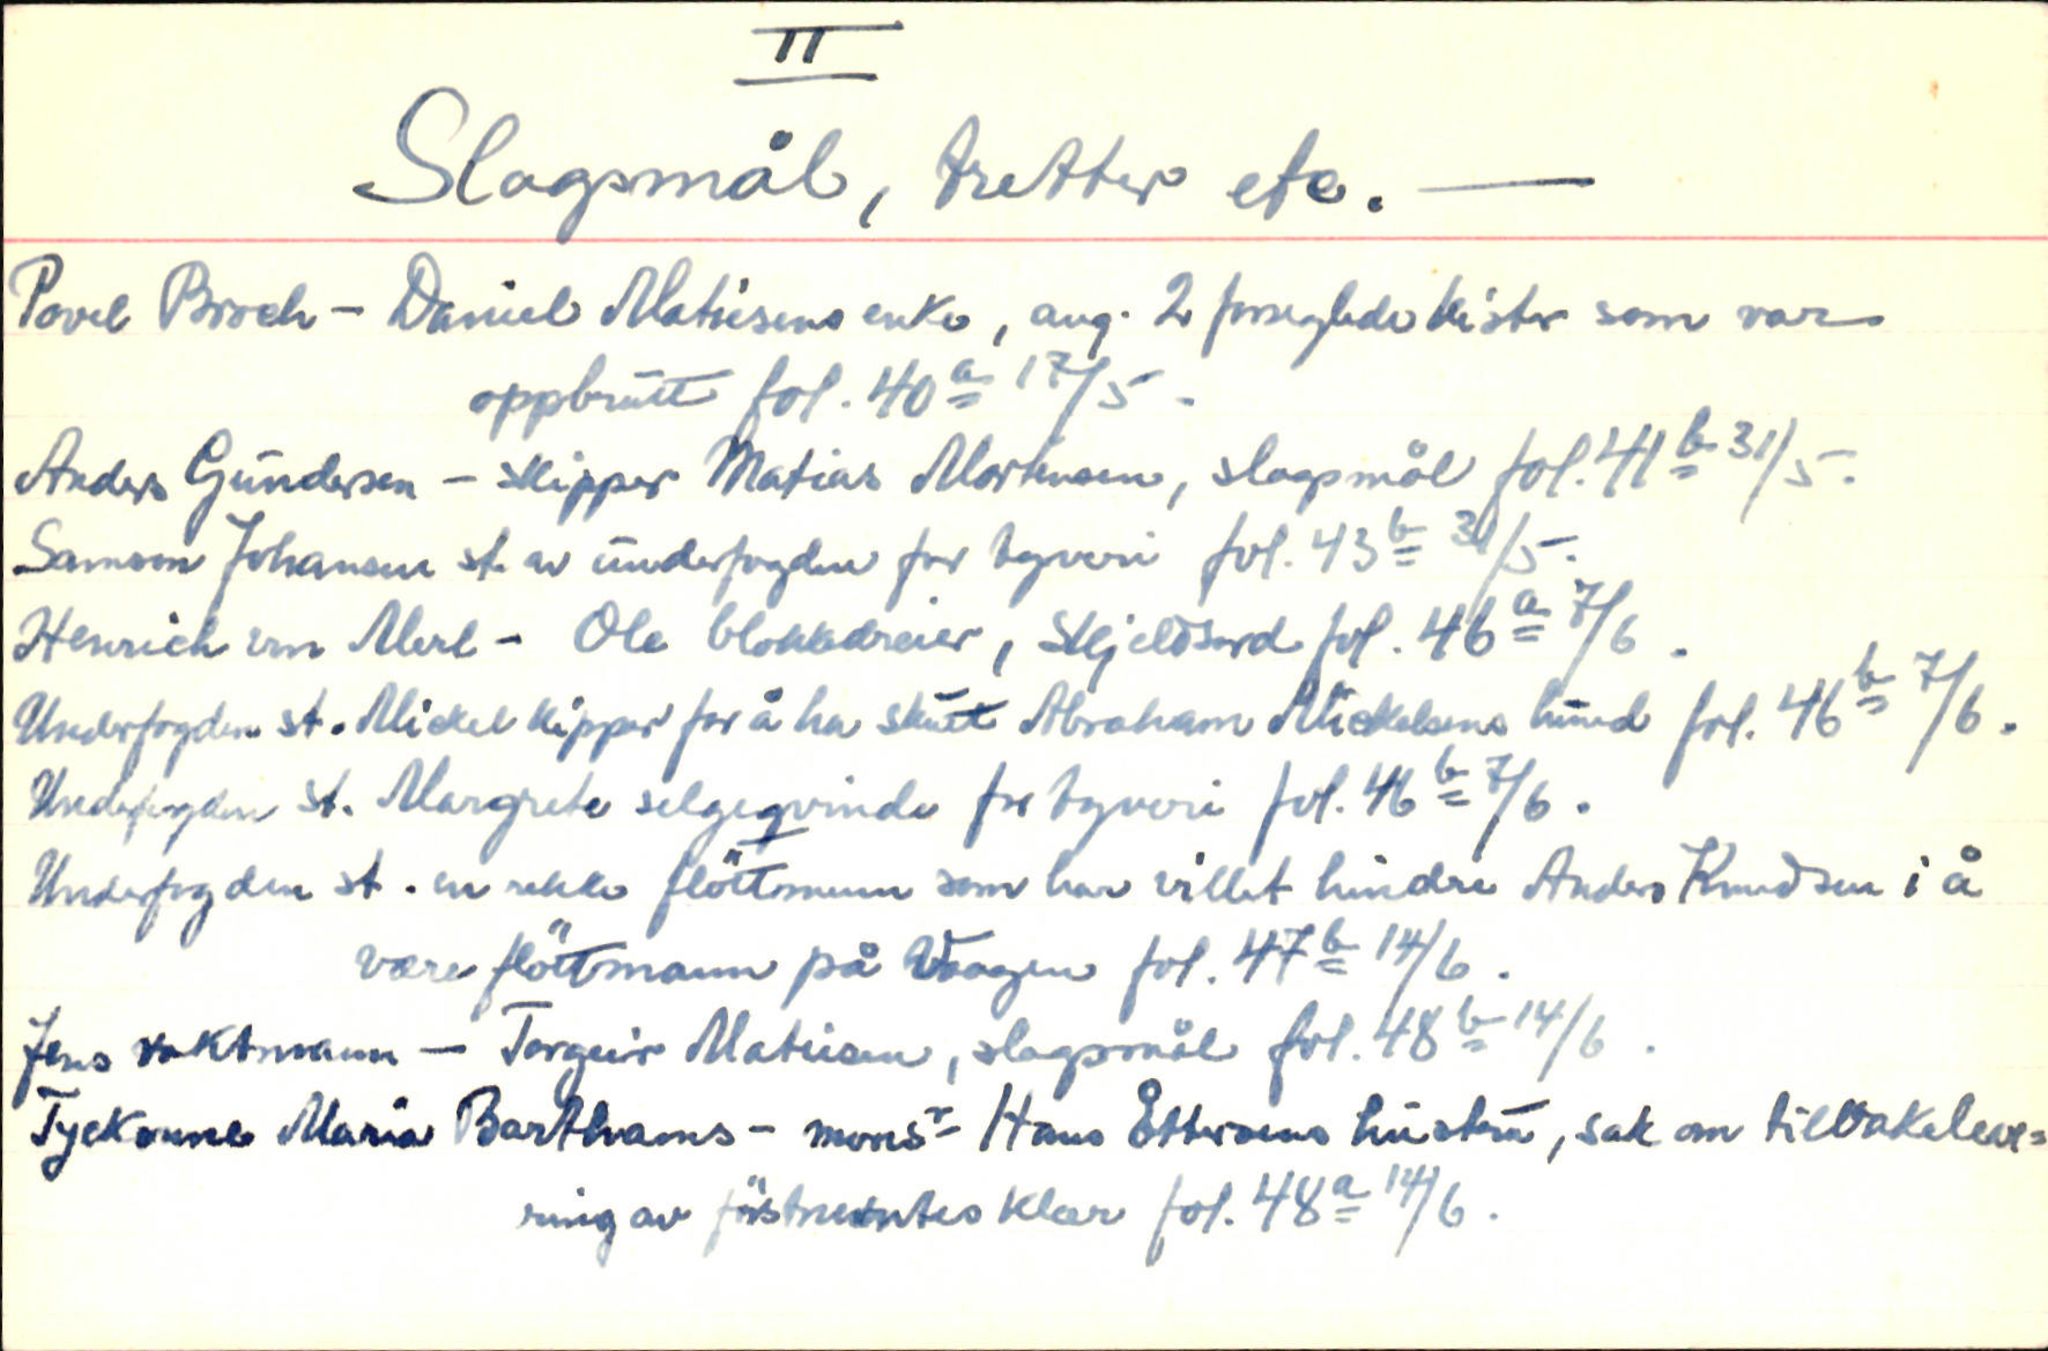 II
Slagsmål, tretter etc. —
Povel Broch - Daniel Matiesens enke, ang. 2 forseglede kister som var
oppbrutt fol. 40a 17/5.
Anders Gundersen - skipper Matias Mortensen, slagsmål fol. 41b 31/5.
Samson Johansen st. av underfogden for tyveri fol. 43b 31/5.
Henrich von Merl - Ole blokkdreier, skjeldsord fol. 46a 7/6.
Underfogden st. Mickel kipper for å ha skutt Abraham Mickelsens hund fol. 46b 7/6.
Underfogden st. Margrete selgeqvinde for tyveri fol. 46b 7/6.
Underfogden st. en rekke flöttmenn som har villet hindre Anders Knudsen i å
være flöttmann på Vaagen fol. 47b 14/6.
Jens vaktmann - Torgeir Matiesen, slagsmål fol. 48b 14/6.
Tyckonne Maria Barthrams - monsr Hans Ettersens hustru, sak om tilbakeleve=
ring av förstnevntes klær fol. 48a 14/6.